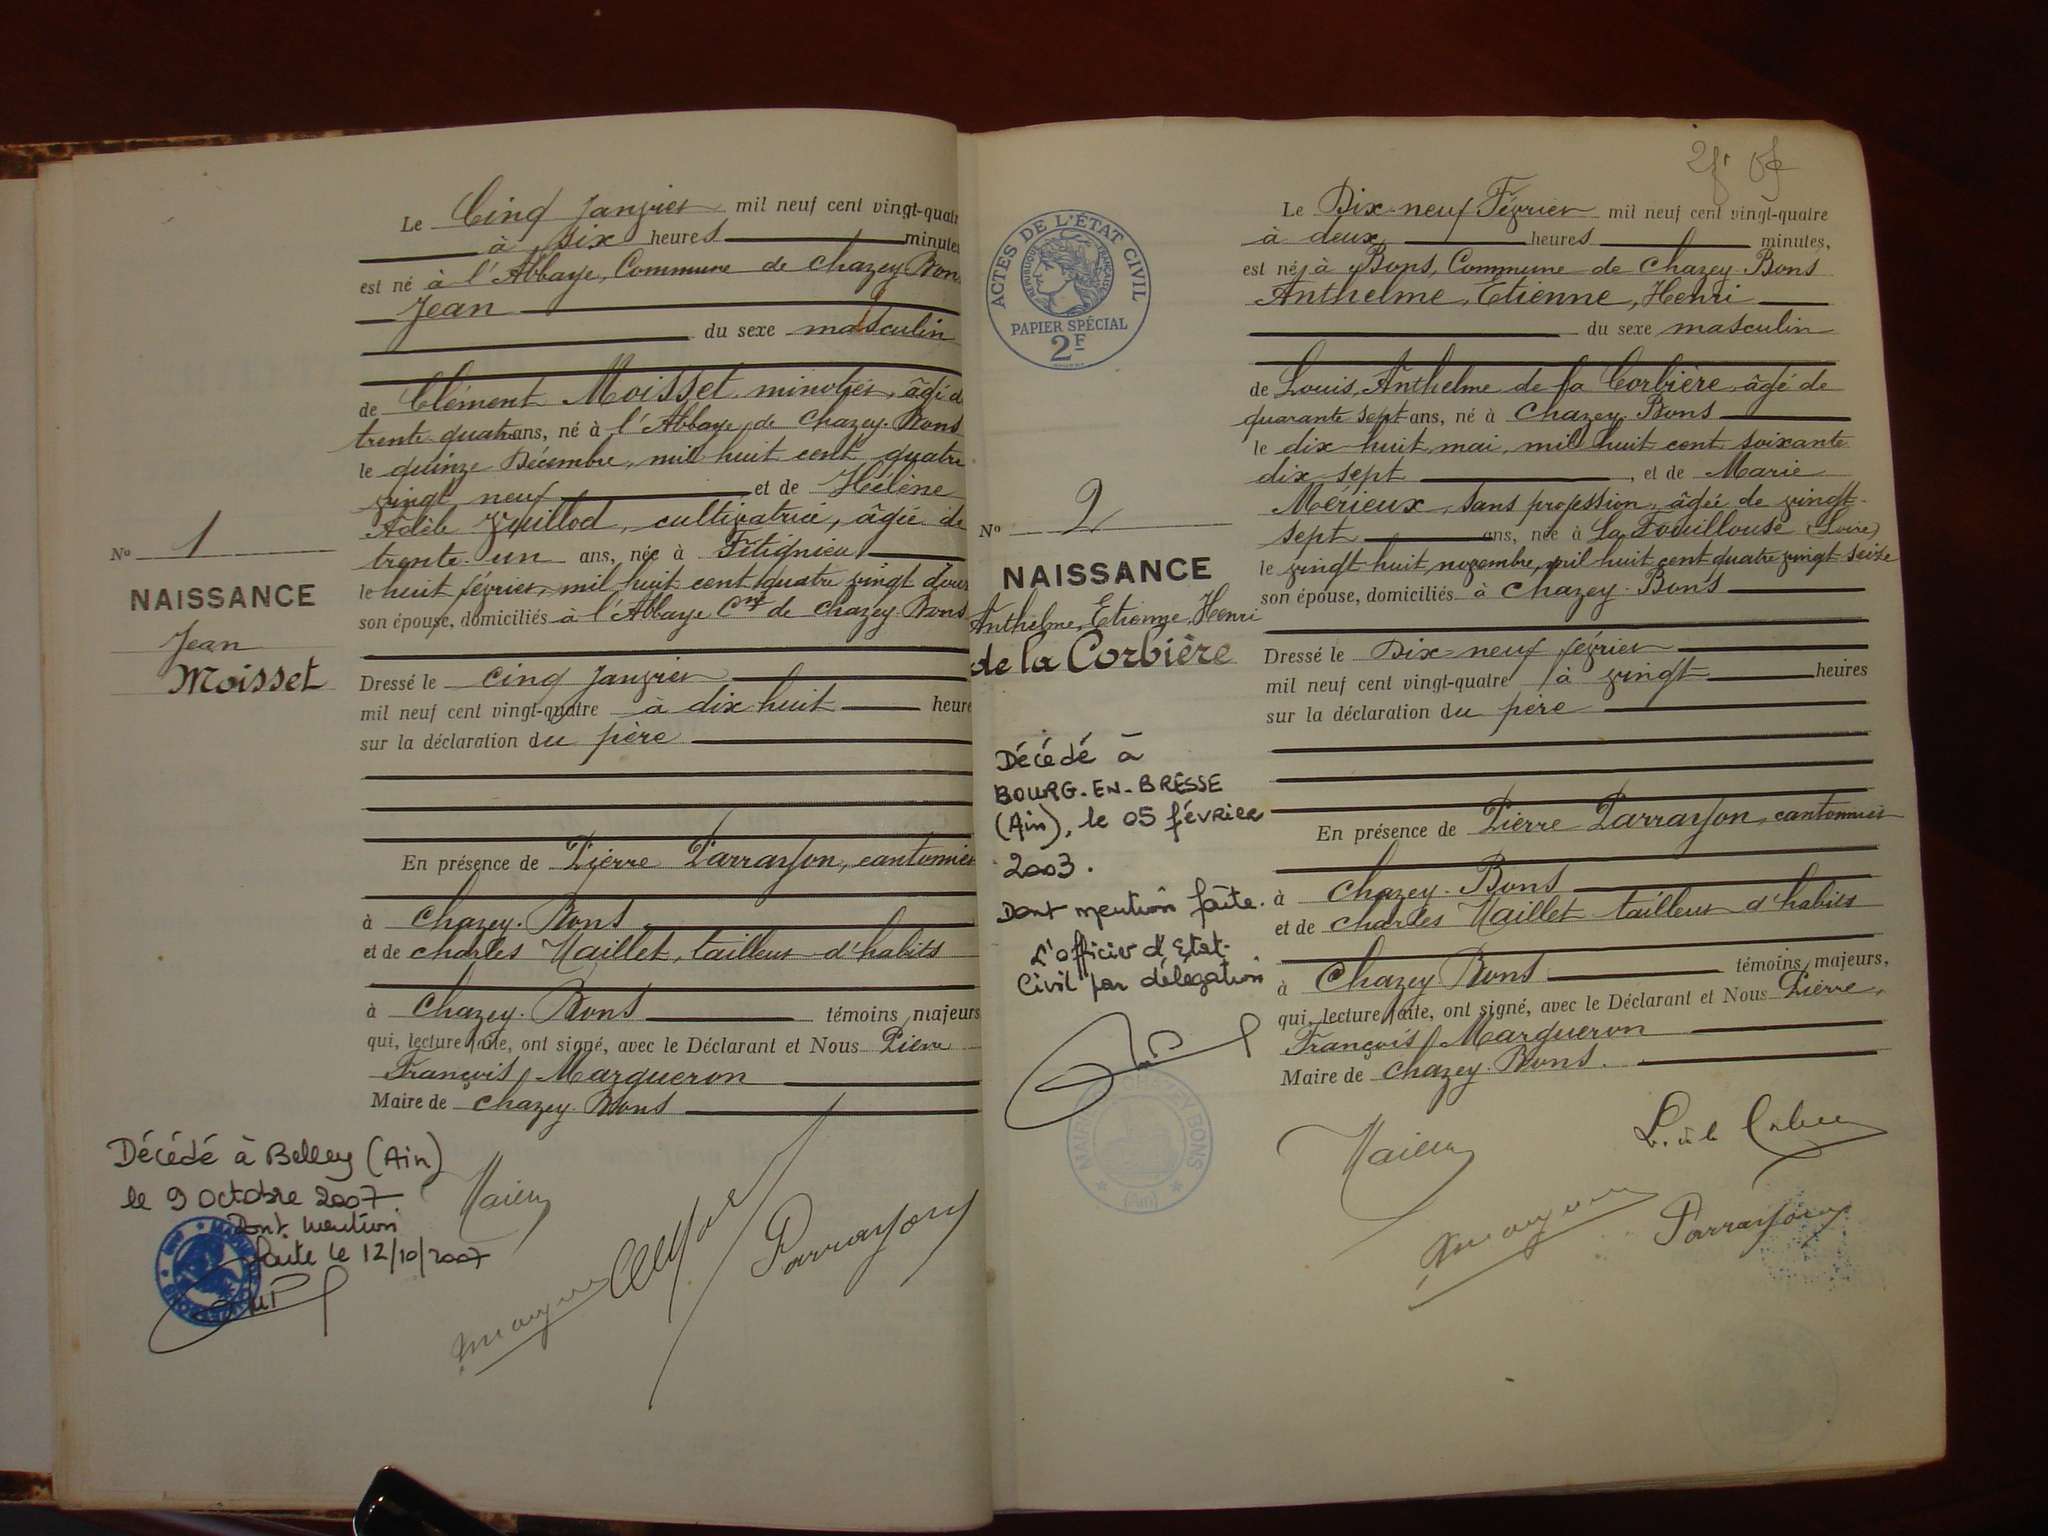 Le Cinq Janvier mil neuf cent vingt-quatre
à six heures minutes
est né à l'Abbaye, Commune de Chazey Bons
Jean
du sexe masculin
de Clément Moisset, minotier, âgé d
trente quatre ans, né à l'Abbaye, de Chazey-Bons
le quinze Décembre, mil huit cent quatre
vingt neuf et de Hélène
Adèle Juillod, cultivatrice, âgée de
trente-un ans, née à Fitignieu
le huit février, mil huit cent quatre vingt douze
son épouse, domiciliés à l'Abbaye Cne de Chazey-Bons
No 1
NAISSANCE
Jean
Moisset
Dressé le cinq janvier
mil neuf cent vingt-quatre à dix-huit heure
sur la déclaration du père
En présence de Pierre Parrayon, cantonnier
à Chazey-Bons
et de Charles Maillet, tailleur d'habits
à Chazey-Bons témoins majeurs
qui, lecture faite, ont signé, avec le Déclarant et Nous Pierre
François Margueron
Maire de Chazey-Bons
Décédé à Belley (Ain)
le 9 Octobre 2007.
Dont mention
faite le 12/10/2007
Parrayon
2f
ACTES DE L'ÉTAT CIVIL
RÉPUBLIQUE FRANÇAISE
PAPIER SPÉCIAL
2F
Le Dix-neuf Février mil neuf cent vingt-quatre
à deux heures minutes,
est né à Bons, Commune de Chazey-Bons
Anthelme, Etienne, Henri
du sexe masculin
de Louis, Anthelme de la Corbière, âgé de
quarante sept ans, né à Chazey-Bons
le dix-huit mai, mil huit cent soixante
dix sept, et de Marie
Mérieux, sans profession, âgée de vingt-
sept ans, née à La Fouillouse (Loire)
le vingt-huit, novembre, mil huit cent quatre vingt-seize
son épouse, domiciliés à Chazey-Bons
No 2
NAISSANCE
Anthelme, Etienne, Henri
de la Corbière
Dressé le Dix-neuf février
mil neuf cent vingt-quatre à vingt heures
sur la déclaration du père
En présence de Pierre Parrayon, cantonnier
à Chazey-Bons
et de Charles Maillet tailleur d'habits
à Chazey Bons témoins majeurs,
qui, lecture faite, ont signé, avec le Déclarant et Nous Pierre,
François Margueron
Maire de Chazey-Bons.
Décédé à
BOURG-EN-BRESSE
(Ain), le 05 février
2003.
Dont mention faite.
L'officier d'Etat-
Civil par délégation
MAIRIE CHAZEY BONS
(Ain)
Parrayon